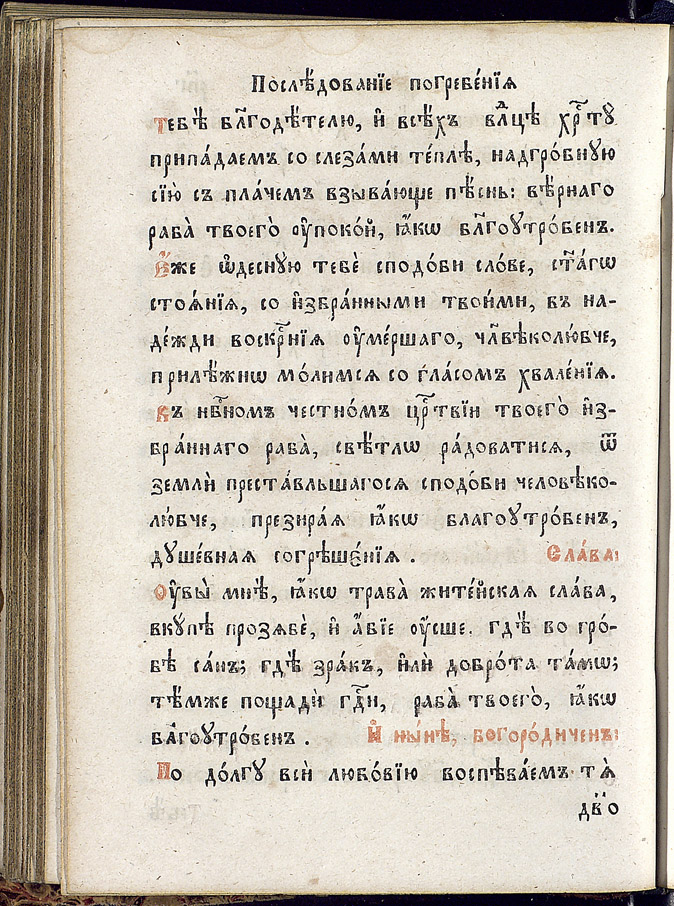 Послѣ́дованїе погребе́нїѧ
тебѣ̀ бл҃годѣ́телю, и҆ всѣ́хъ влⷣцѣ хрⷭ҇тꙋ̀
припа́даемъ со слеза́ми те́плѣ, надгро́бнꙋю
сїю̀ съ пла́чемъ взыва́юще пѣ́снь: вѣ́рнаго
раба̀ твоего̀ ᲂу҆поко́й, ꙗ҆́кѡ бл҃гоꙋтро́бенъ.
Е҆́же ѡ҆деснꙋ́ю тебѐ сподо́би сло́ве, ст҃а́гѡ
стоѧ́нїѧ, со и҆збра́нными твои́ми, въ на-
де́жди воскрⷭ҇нїѧ ᲂу҆ме́ршаго, чл҃вѣколю́бче,
прилѣ́жнѡ мо́лимсѧ со гла́сомъ хвале́нїѧ.
Въ нбⷭ҇номъ честно́мъ црⷭ҇твїи твоего̀ и҆з-
бра́ннаго раба̀, свѣ́тлѡ ра́доватисѧ, ѿ
землѝ преста́вльшагосѧ сподо́би человѣко-
лю́бче, презира́ѧ ꙗ҆́кѡ благоꙋтро́бенъ,
дꙋше́внаѧ согрѣше́нїѧ . Сла́ва:
Оу҆вы̀ мнѣ̀, ꙗ҆́кѡ трава̀ жите́йскаѧ сла́ва,
вкꙋ́пѣ прозѧбѐ, и҆ а҆́бїе ᲂу҆́сше. гдѣ̀ во гро́-
бѣ са́нъ; гдѣ̀ зра́къ, и҆лѝ добро́та та́мѡ;
тѣ́мже пощадѝ гдⷭ҇и, раба̀ твоего̀, ꙗ҆́кѡ
бл҃гоꙋтро́бенъ . И҆ ны́нѣ, богоро́диченъ:
По до́лгꙋ всѝ любо́вїю воспѣва́емъ тѧ̀
дв҃о